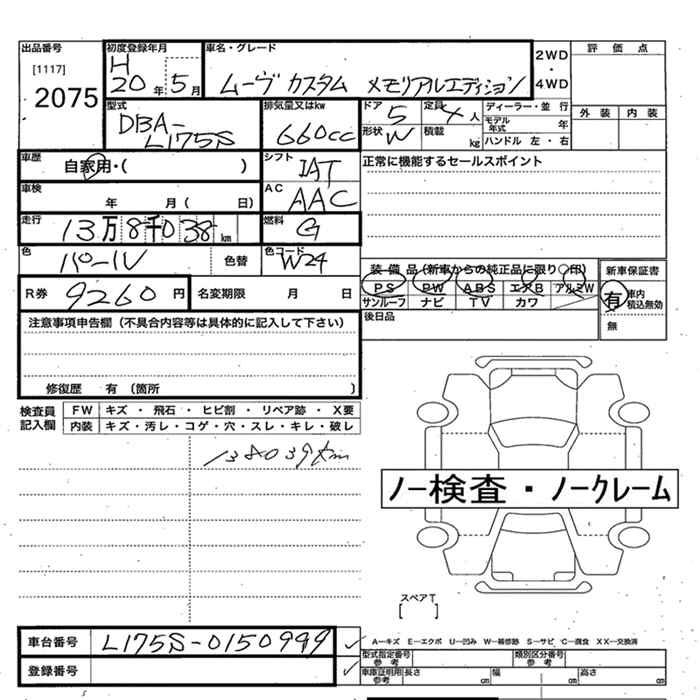 出品番号 初度登録年月 車名・グレード 2WD・4WD 評価点
[1117] H
2075 20年 5月 ムーヴ カスタム メモリアルエディション
型式 排気量又はkw ドア 5 定員 4人 ディーラー・並行 外装 内装
DBA-L175S 660cc 形状 W 積載 kg モデル年式 年
ハンドル 左・右
車歴 自家用・( ) シフト IAT 正常に機能するセールスポイント
車検 年 月( 日) AC AAC
走行 13万8千038km 燃料 G
色 パール 色替 色コード W24
装備品(新車からの純正品に限り○印) 新車保証書
PS PW ABS エアB アルミW 有 車内積込無効
サンルーフ ナビ TV カワ 無
R券 9260円 名変期限 月 日
後日品
注意事項申告欄(不具合内容等は具体的に記入して下さい)
修復歴 有 (箇所 )
検査員記入欄 FW キズ ・ 飛石 ・ ヒビ割 ・ リペア跡 ・ X要
内装 キズ・汚レ・コゲ・穴・スレ・キレ・破レ
138039km
ノー検査・ノークレーム
スペアT
[ ]
車台番号 L175S-0150999
登録番号
A−キズ E−エクボ U−凹み W−補修跡 S−サビ C−腐食 XX−交換済
型式指定番号 参考 類別区分番号 参考
車庫証明用 参考 長さ cm 幅 cm 高さ cm